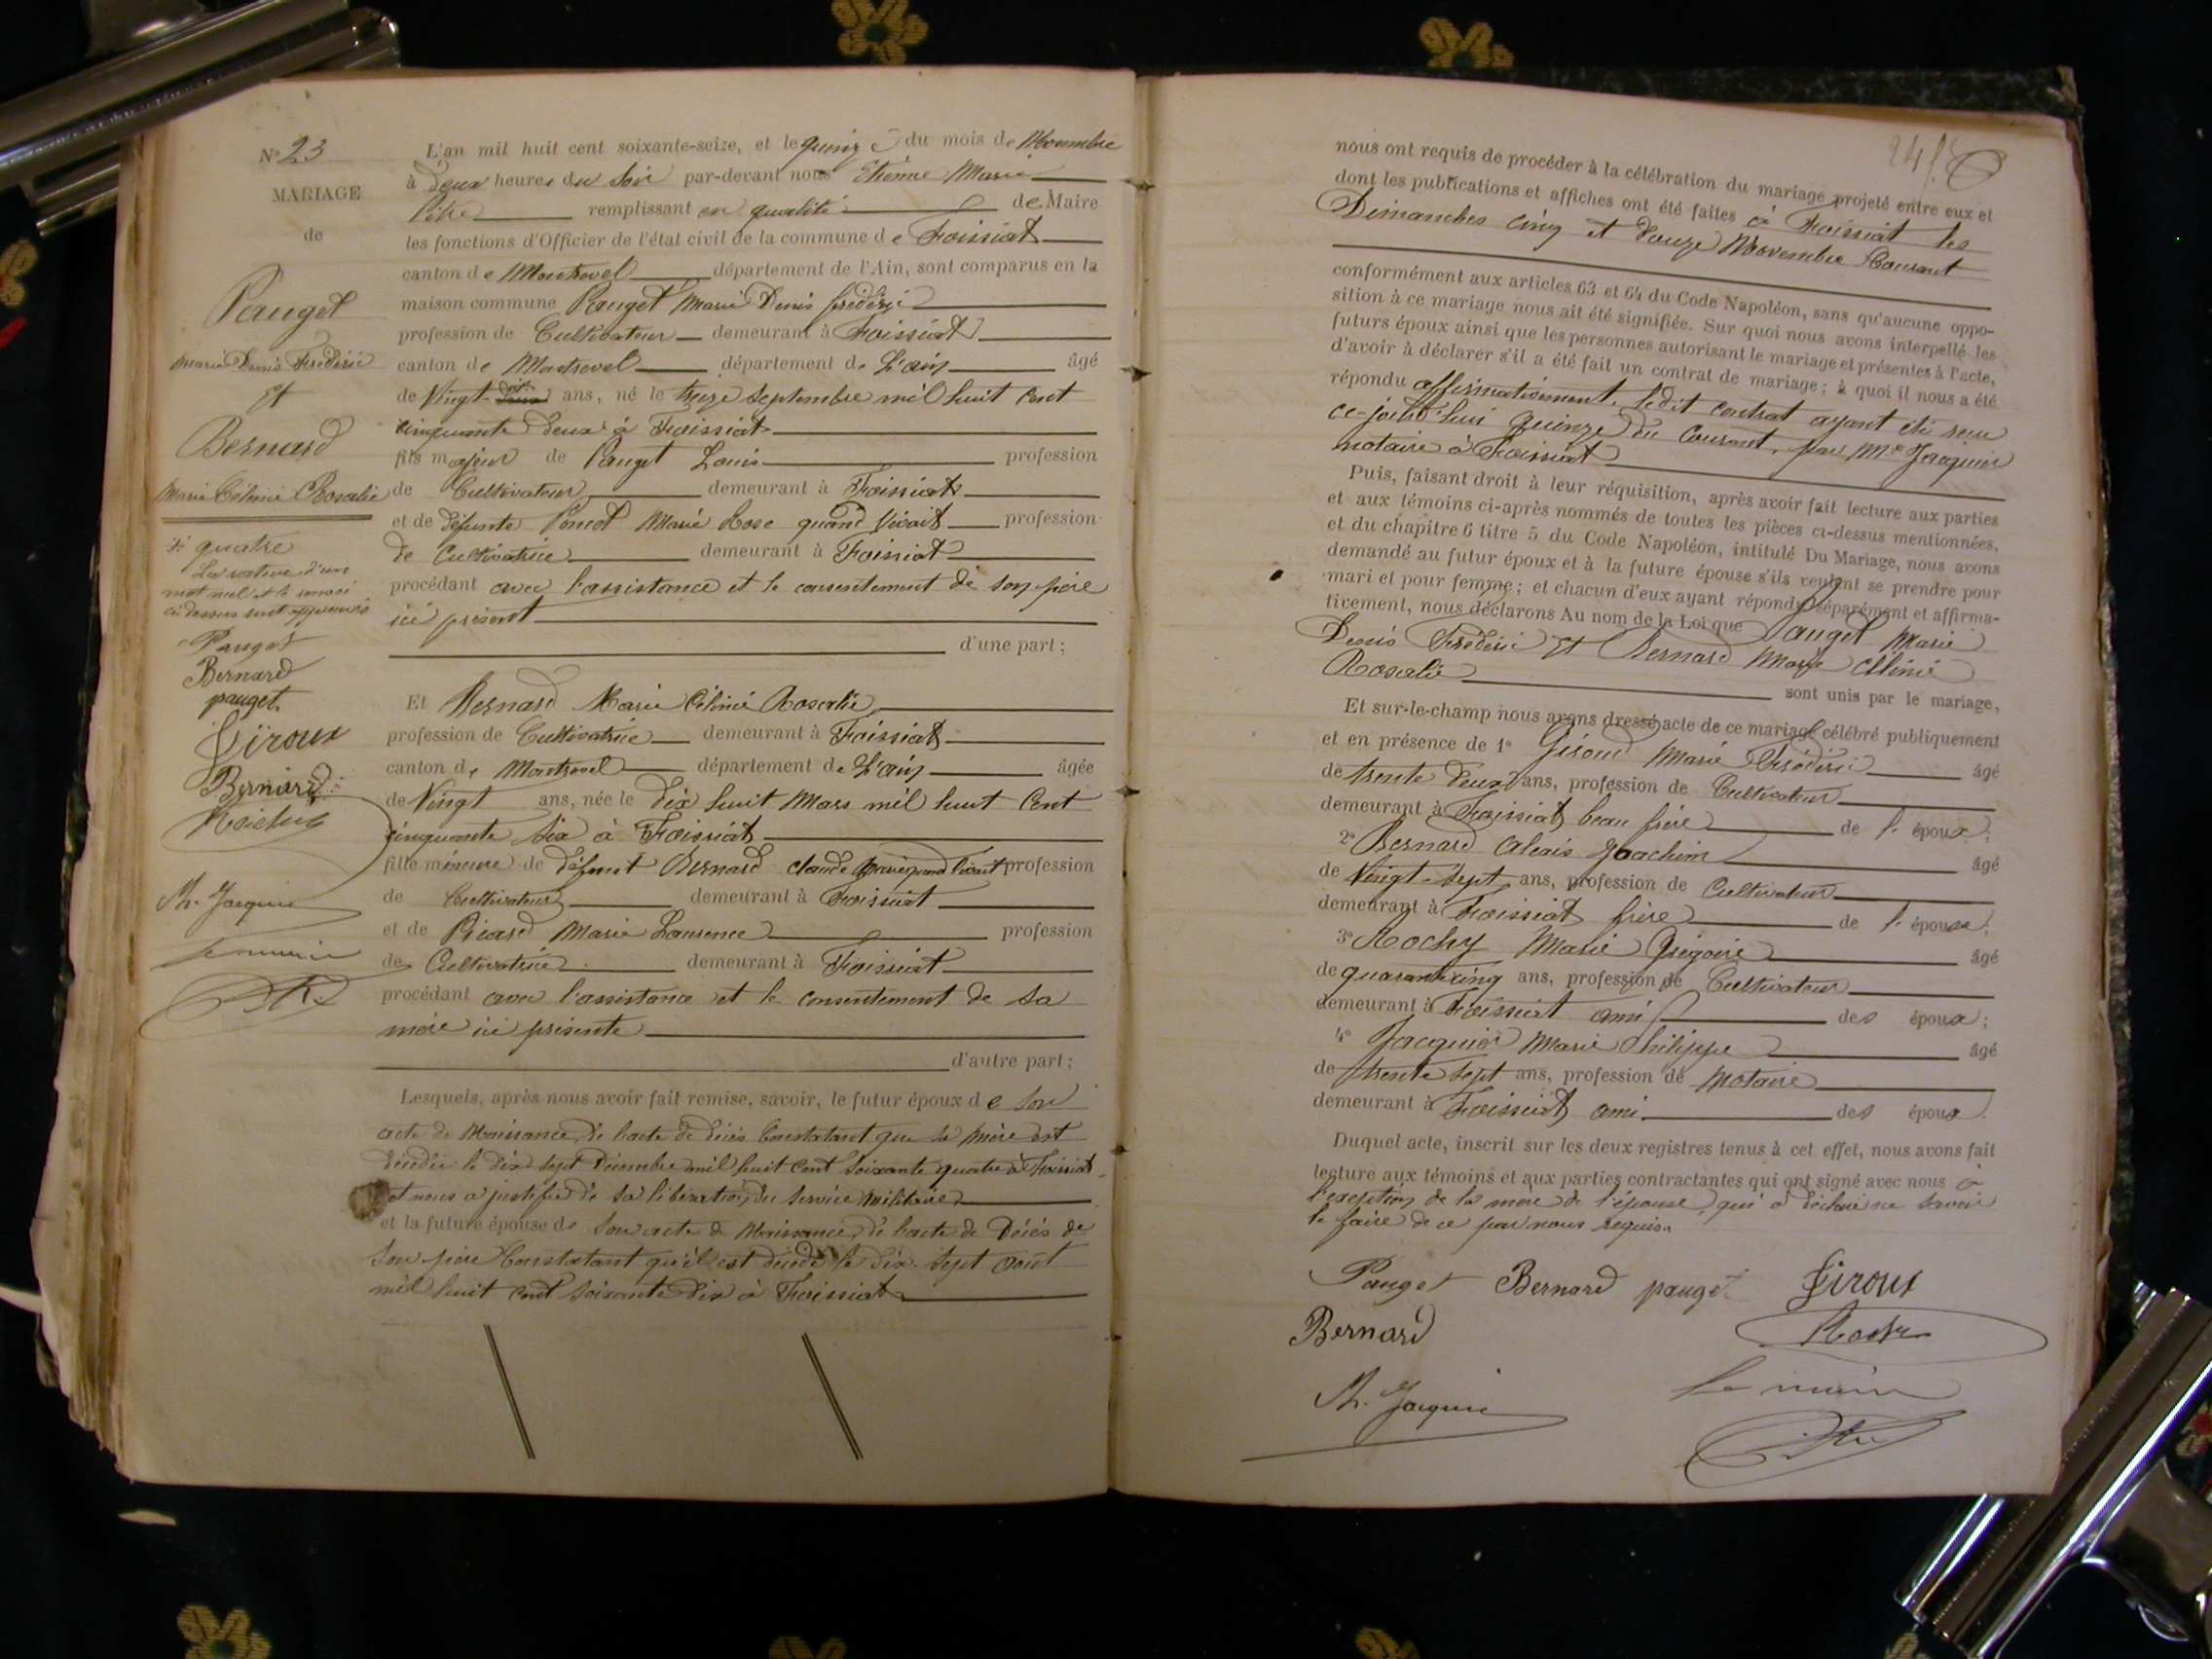 N° 23
MARIAGE
de
Pauget
Marie Denis Frédéric
Et
Bernard
Marie Céline Rosalie
quatre
La rature d'un
mot nul et le renvoi
ci dessus sont approuvés
Pauget
Bernard
pauget
Giroud
Bernard
Ph. Jacquier
Le maire
L'an mil huit cent soixante-seize, et le quinze du mois de Novembre
à Deux heures du Soir par-devant nous Etienne Marie
Pitre remplissant en qualité de Maire
les fonctions d'Officier de l'état civil de la commune de Foissiat
canton de Montrevel département de l'Ain, sont comparus en la
maison commune Pauget Marie Denis frédéric
profession de Cultivateur demeurant à Foissiat
canton de Montrevel département de L'ain âgé
de Vingt ans, né le treize septembre mil huit cent
cinquante deux à Foissiat
fils majeur de Pauget Louis profession
de Cultivateur demeurant à Foissiat
et de défunte Marie Rose quand vivait profession
de Cultivatrice demeurant à Foissiat
procédant avec l'assistance et le consentement de son père
ici présent
d'une part;
Et Bernard Marie Céline Rosalie
profession de Cultivatrice demeurant à Foissiat
canton de Montrevel département de L'ain âgée
de Vingt ans, née le dix huit Mars mil huit Cent
cinquante Six à Foissiat
fille mineure de défunt Bernard Claude Marie quand vivait profession
de Cultivateur demeurant à Foissiat
et de Picard Marie Laurence profession
de Cultivatrice demeurant à Foissiat
procédant avec l'assistance et le consentement de sa
mère ici présente
d'autre part;
Lesquels, après nous avoir fait remise, savoir, le futur époux de son
acte de Naissance, de l'acte de décès Constatant que sa mère est
décédée le dix sept Décembre mil huit cent soixante quatre à Foissiat
et nous a justifié de sa libération du service militaire
et la future épouse de son acte de Naissance, de l'acte de Décès de
son père Constatant qu'il est décédé le dix sept août
mil huit cent soixante dix à Foissiat
nous ont requis de procéder à la célébration du mariage projeté entre eux et
dont les publications et affiches ont été faites à Foissiat les
Dimanches cinq et douze Novembre Courant
conformément aux articles 63 et 64 du Code Napoléon, sans qu'aucune oppo-
sition à ce mariage nous ait été signifiée. Sur quoi nous avons interpellé les
futurs époux ainsi que les personnes autorisant le mariage et présentes à l'acte,
d'avoir à déclarer s'il a été fait un contrat de mariage; à quoi il nous a été
répondu affirmativement, ledit contrat ayant été reçu
ce-jourd'hui quinze du Courant, par Me Jacquier
notaire à Foissiat
Puis, faisant droit à leur réquisition, après avoir fait lecture aux parties
et aux témoins ci-après nommés de toutes les pièces ci-dessus mentionnées,
et du chapitre 6 titre 5 du Code Napoléon, intitulé Du Mariage, nous avons
demandé au futur époux et à la future épouse s'ils veulent se prendre pour
mari et pour femme; et chacun d'eux ayant répondu séparément et affirma-
tivement, nous déclarons Au nom de la Loi que Pauget Marie
Denis Frédéric Et Bernard Marie Céline
Rosalie sont unis par le mariage,
Et sur-le-champ nous avons dressé acte de ce mariage célébré publiquement
et en présence de 1° Giroud Marie Frédéric âgé
de trente deux ans, profession de Cultivateur
demeurant à Foissiat beau frère de l'époux;
2° Bernard Alexis Joachim âgé
de Vingt-sept ans, profession de Cultivateur
demeurant à Foissiat frère de l'épouse;
3° Rochy Marie Grégoire âgé
de quarante cinq ans, profession de Cultivateur
demeurant à Foissiat ami des époux;
4° Jacquier Marie Philippe âgé
de trente sept ans, profession de Notaire
demeurant à Foissiat ami des époux.
Duquel acte, inscrit sur les deux registres tenus à cet effet, nous avons fait
lecture aux témoins et aux parties contractantes qui ont signé avec nous à
l'exception de la mère de l'épouse, qui a déclaré ne savoir
le faire de ce par nous requis.
Pauget Bernard pauget Giroud
Bernard
Ph. Jacquier Le maire